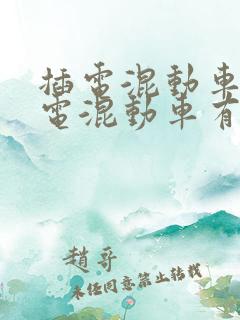 插電混動車
電混動車有
趙哥
未經同意禁止轉載